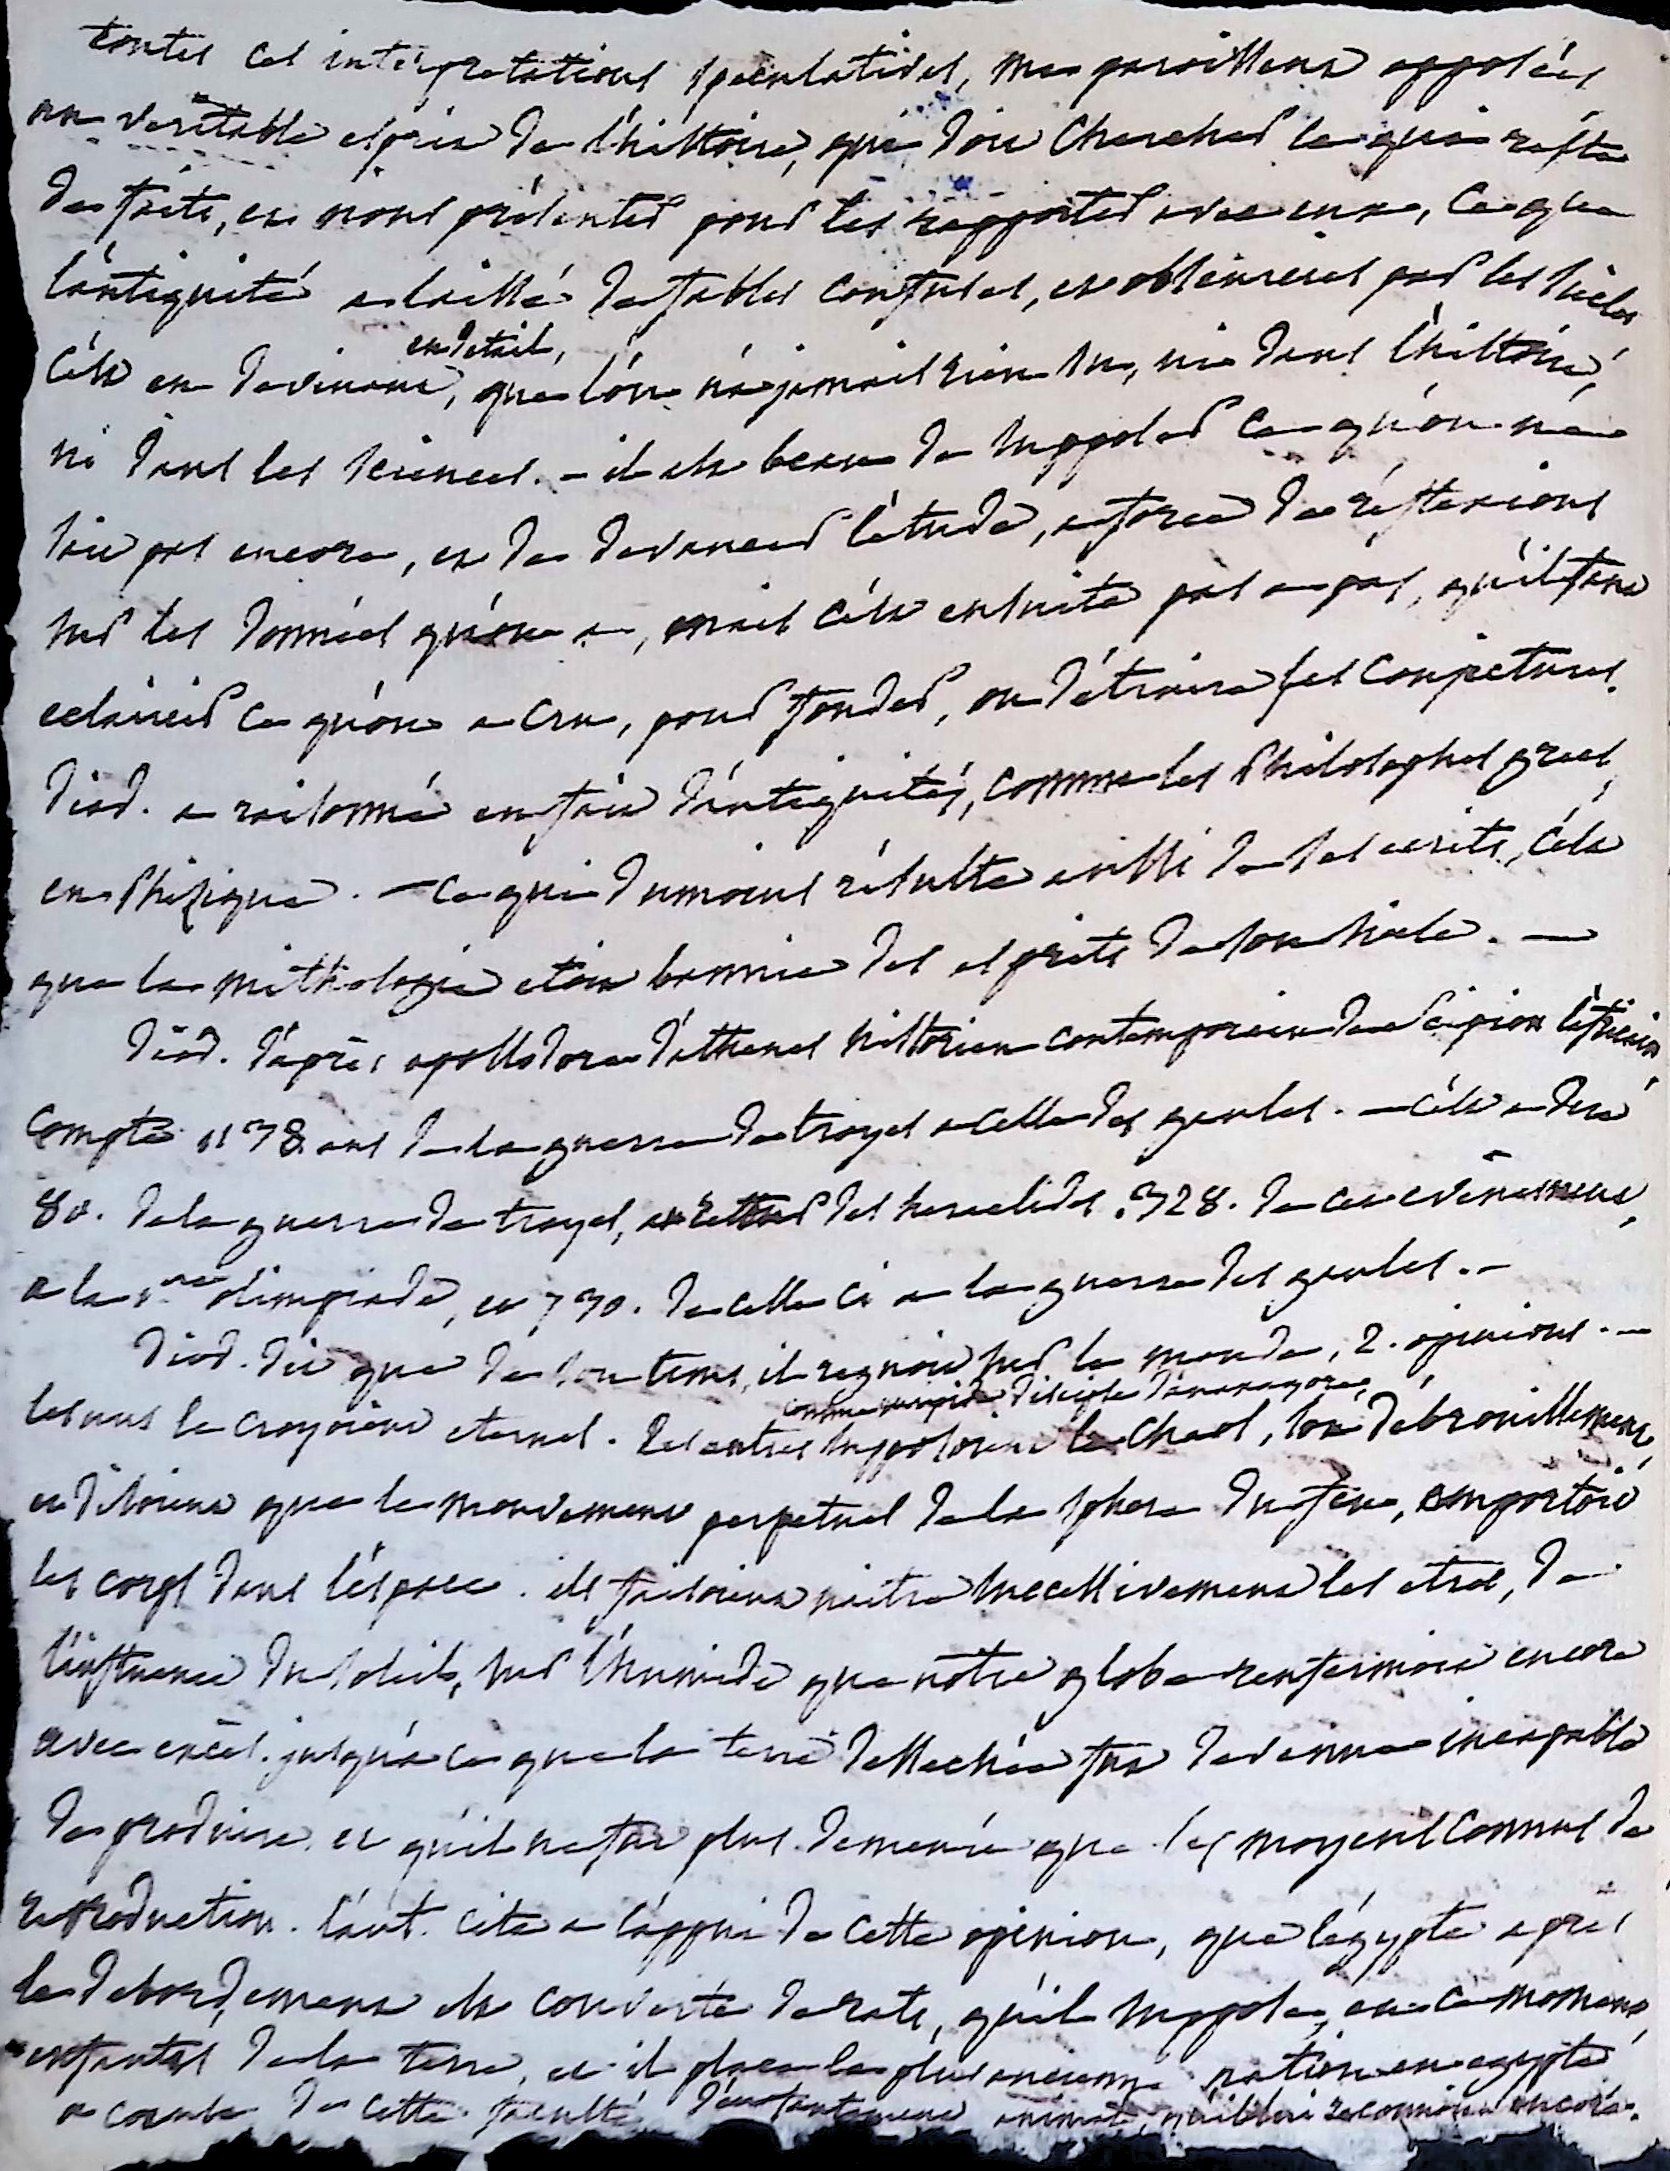 toutes ces interpretations speculatives, me paroissent opposées
au veritable esprit de l'histoire, qui doit chercher ce qui reste
de faits, et nous présenter pour les rapporter avec eux, ce que
l'antiquité a laissé de fables confuses, et obscurcies par les siecles
c'est en devinant en detail, que l'on n'a jamais rien su, ni dans l'histoire,
ni dans les sciences. - il est beau de supposer ce qu'on ne
sait pas encore, et de devancer l'etude, a force de réflexions
sur les données qu'on a, mais c'est ensuite pas a pas, qu'il faut
eclaircir ce qu'on a cru, pour fonder, ou détruire ses conjectures.
Diod. a raisonné en fait d'antiquités, comme les philosophes grecs,
en phizique. - ce qui du moins résulte aussi de ses ecrits, c'est
que la mithologie etoit bannie des esprits de son siecle. -
Diod. d'après apollodore d'athenes historien contemporain de scipion l'africain,
compte 1178 ans de la guerre de troyes a celle des gaules. - c'est a dire
80. de la guerre de troyes, au retour des heraclides. 328. de cet evenement,
a la 1ere olimpiade, et 770. de celle ci a la guerre des gaules. -
Diod. dit que de son tems, il regnoit sur le monde, 2. opinions. -
les uns le croyoient eternel. les autres comme euripide disciple d'anaxagore, supposoient le chaos, son debrouillement,
et disoient que le mouvement perpetuel de la sphere du feu, emportoit
les corps dans l'espace. ils faisoient naitre successivement les etres, de
l'influence du soleil, sur l'humide que notre globe renfermoit encore
avec excès. jusqu'a ce que la terre dessechée fut devenue incapable
de produire. et qu'il ne fut plus demeuré que les moyens connus de
reproduction. l'aut. cite a l'appui de cette opinion, que l'egypte après
le debordement est couverte de rats, qu'il suppose, en ce moment,
enfantés de la terre, et il place la plus ancienne nation en egypte
a cause de cette faculté d'enfantement animal, qu'il lui reconnoit encore.